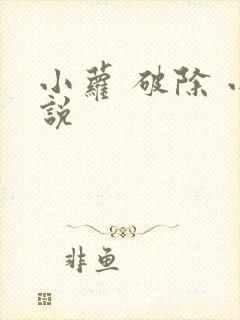 小蘿 破除 小
說
非鱼